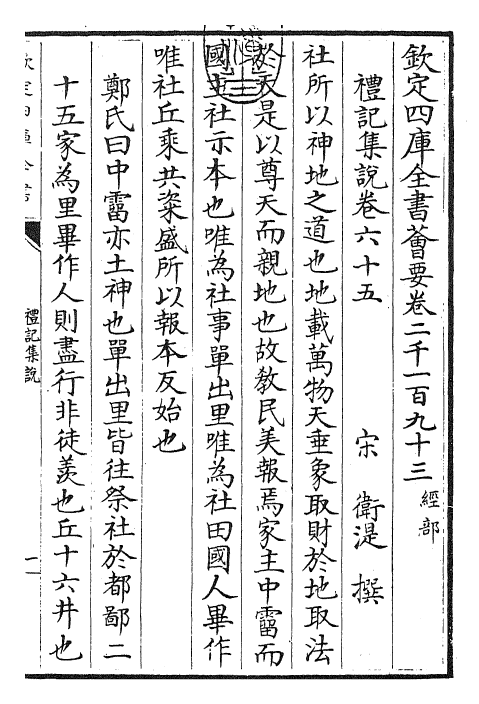 欽定四庫全書薈要卷二千一百九十三 經部
禮記集說卷六十五 宋 衛湜 撰
社所以神地之道也地載萬物天垂象取財於地取法
於天是以尊天而親地也故教民美報焉家主中霤而
國主社示本也唯為社事單出里唯為社田國人畢作
唯社丘乘共粢盛所以報本反始也
鄭氏曰中霤亦土神也單出里皆往祭社於都鄙二
十五家為里畢作人則盡行非徒羨也丘十六井也
禮記集說
一